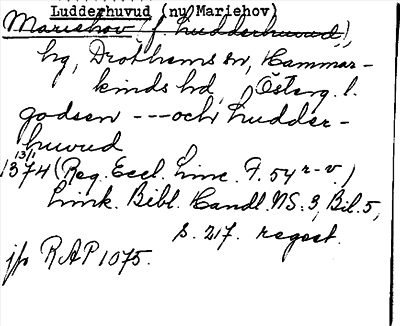 Luddėrhuvud (nu Mariehov)
Mariehov (f. Ludderhuvud),
hg, Drothems sn, Hammar-
kinds hd, Österg. l.
godsen --- och Ludder-
huvud
13/1
1374 (Reg. Eccl. Linc. f. 54 r-v.)
Link. Bibl. Handl. NS. 3, Bil. 5,
s. 217. regest.
jfr RAP 1075.